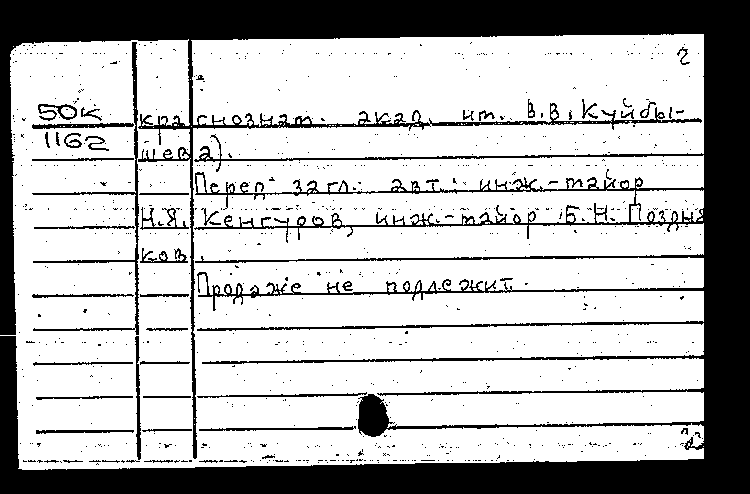 2
50к
1162
краснознам. акад. им. В.В. Куйбы-
шева).
Перед загл.: авт.: инж.-майор
Н.Я. Кенгуров, инж.-майор Б.Н. Поздня
ков.
Продаже не подлежит.